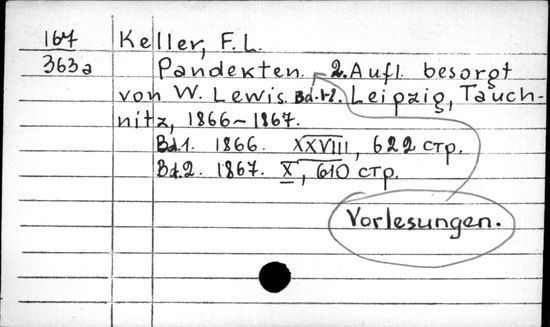 167 Keller, F. L.
363a Pandekten. 2. Aufl. besorgt
von W. Lewis. Bd. 1-2. Leipzig, Tauch-
nitz, 1866-1867.
Bd. 1. 1866. XXVIII, 622 стр.
Bd. 2. 1867. X, 610 стр.
Vorlesungen.